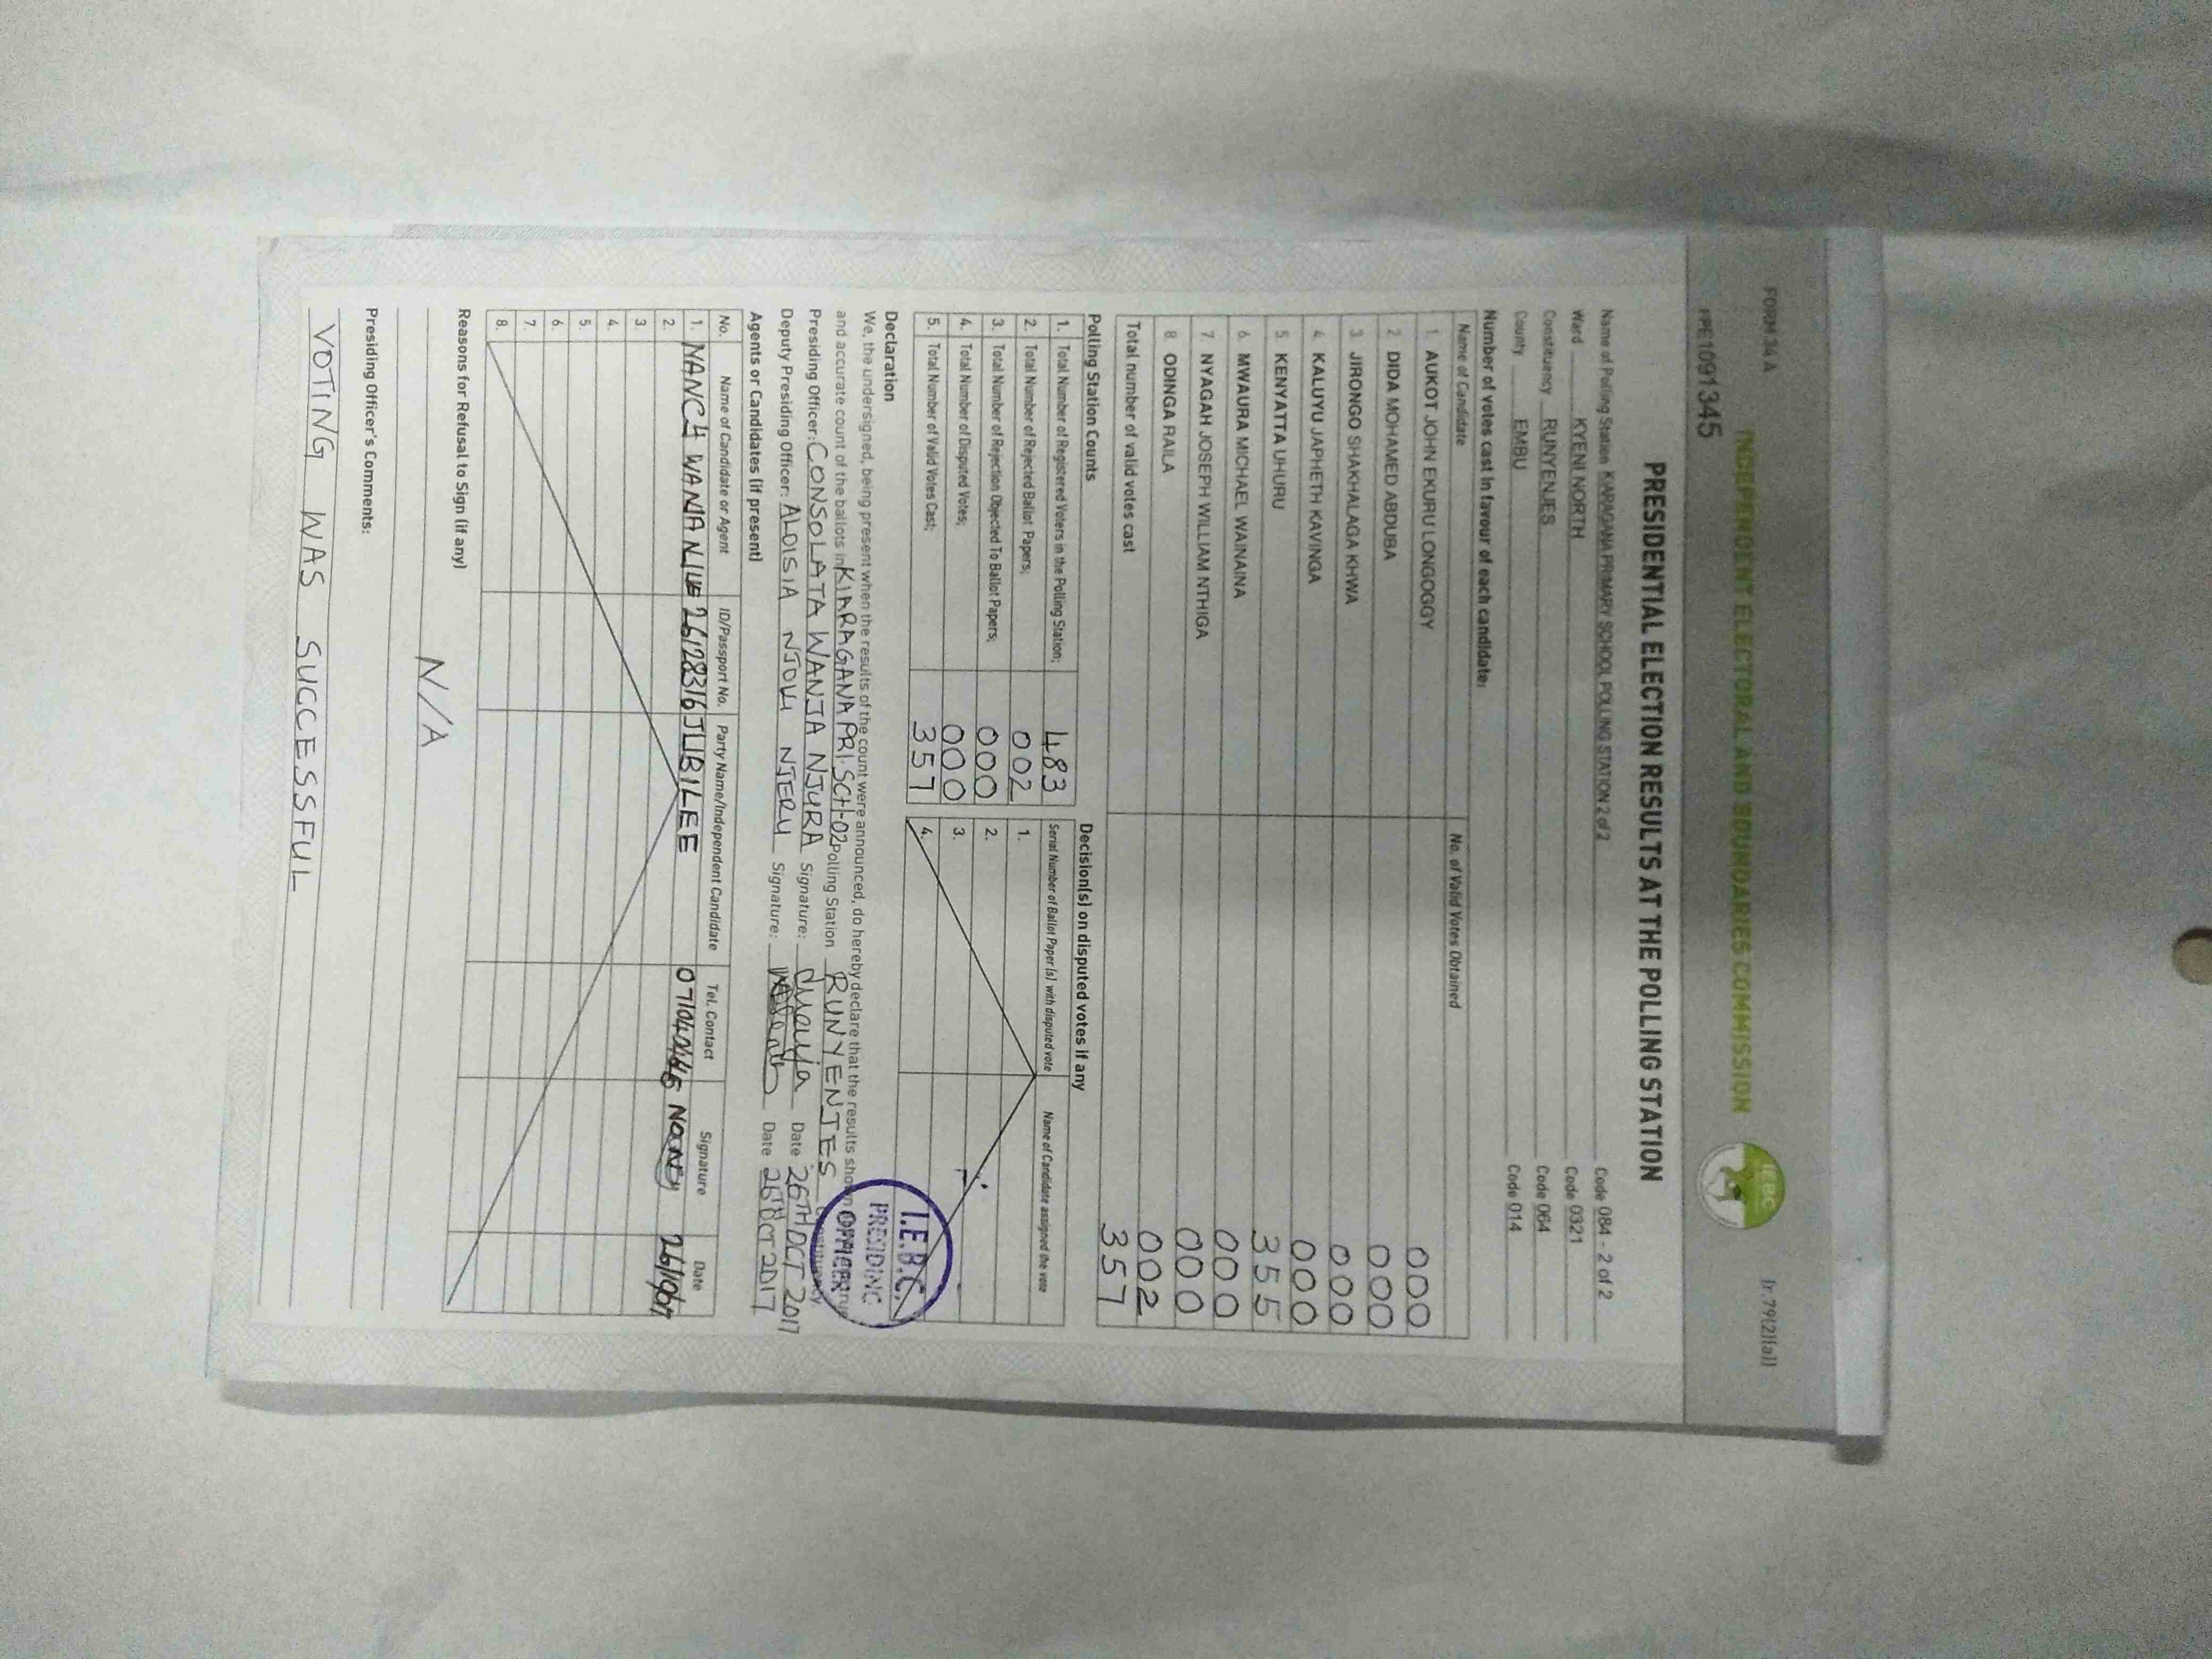 FORM 34 A
INDEPENDENT ELECTORAL AND BOUNDARIES COMMISSION
IEBC
(r.79(2)(a))
PE1091345
PRESIDENTIAL ELECTION RESULTS AT THE POLLING STATION
Name of Polling Station KARAGANA PRIMARY SCHOOL POLLING STATION 2 of 2 Code 084 - 2 of 2
Ward KYENI NORTH Code 0321
Constituency RUNYENJES Code 064
County EMBU Code 014
Number of votes cast in favour of each candidate:
Name of Candidate No. of Valid Votes Obtained
1. AUKOT JOHN EKURU LONGOGGY 000
2. DIDA MOHAMED ABDUBA 000
3. JIRONGO SHAKHALAGA KHWA 000
4. KALUYU JAPHETH KAVINGA 000
5. KENYATTA UHURU 355
6. MWAURA MICHAEL WAINAINA 000
7. NYAGAH JOSEPH WILLIAM NTHIGA 000
8. ODINGA RAILA 002
Total number of valid votes cast 357
Polling Station Counts
1. Total Number of Registered Voters in the Polling Station; 483
2. Total Number of Rejected Ballot Papers; 002
3. Total Number of Rejection Objected To Ballot Papers; 000
4. Total Number of Disputed Votes; 000
5. Total Number of Valid Votes Cast; 357
Decision(s) on disputed votes if any
Serial Number of Ballot Paper (s) with disputed vote Name of Candidate assigned the vote
1.
2.
3.
4.
Declaration
We, the undersigned, being present when the results of the count were announced, do hereby declare that the results shown
and accurate count of the ballots in KIARAGANA PRI.SCH-02 Polling Station RUNYENJES
Presiding Officer: CONSOLATA WANJA NJURA Signature: Date 26TH OCT 2017
Deputy Presiding Officer: ALOISIA NJOKI NJERU Signature: Date 26TH OCT 2017
I.E.B.C.
PRESIDING
OFFICER
Agents or Candidates (if present)
No. Name of Candidate or Agent ID/Passport No. Party Name/Independent Candidate Tel. Contact Signature Date
1. NANCY WANA 26128316 JUBILEE
2.
3.
4.
5.
6.
7.
8.
Reasons for Refusal to Sign (if any)
N/A
Presiding Officer's Comments:
VOTING WAS SUCCESSFUL